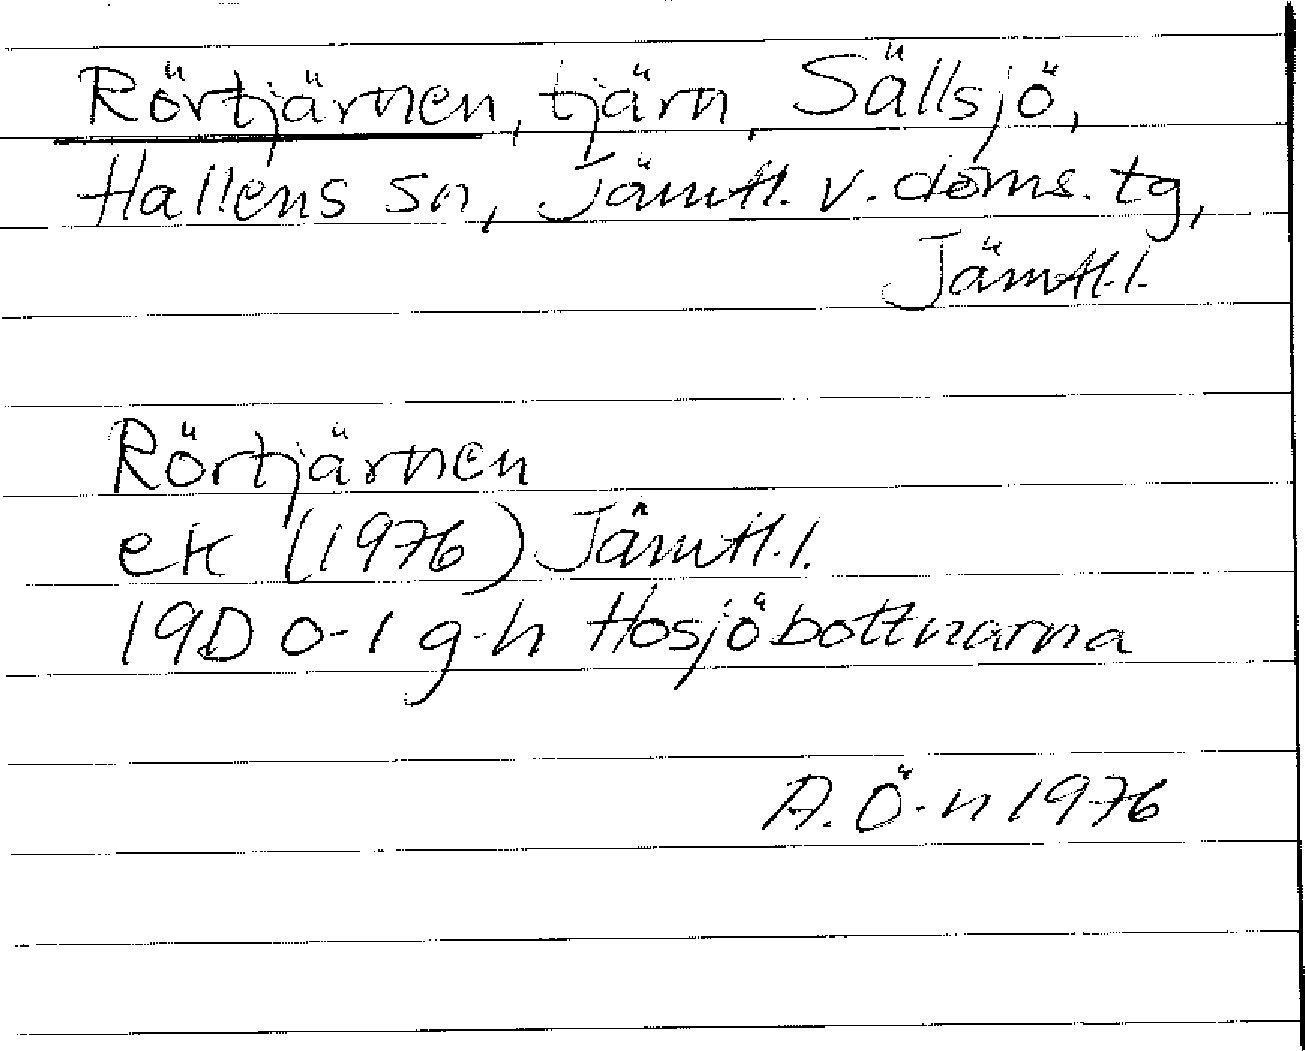 Rörtjärnen, tjärn, Sällsjö,
Hallens sn, Jämtl. v. doms. tg,
Jämtl. l.
Rörtjärnen
ek (1976) Jämtl. l.
19D 0-1 g-h Hosjöbottnarna
A. Ö-n 1976